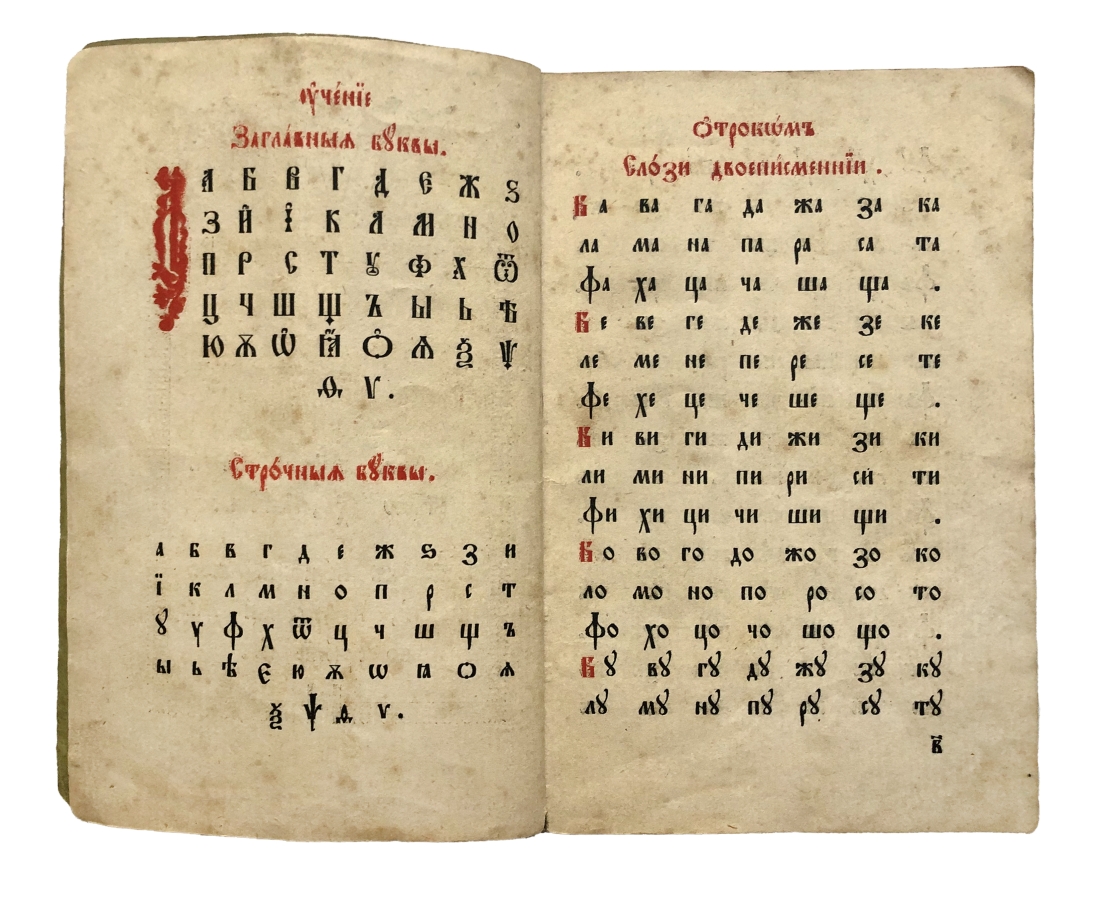 ᲂу҆че́нїе
Загла́вныѧ бꙋквы.
А Б В Г Д Є Ж Ѕ
З Й І К Л М Н О
П Р С Т Ꙋ Ф Х Ѿ
Ц Ч Ш Щ Ъ Ы Ь Ѣ
Ю Ѫ Ѡ҆ Ꙗ Ѻ҆ Ѧ Ѯ Ѱ
Ѳ Ѵ .
Стро́чныѧ бꙋквы.
а б в г д е ж ѕ з и
ї к л м н о п р с т
ꙋ у ф х ѿ ц ч ш щ ъ
ы ь ѣ є ю ѫ ѡ ꙗ ѻ ѧ
ѯ ѱ ѳ ѵ .
Ѻ҆трокѡ́мъ
Сло́зи двоепи́сменнїи .
Ба ва га да жа за ка
ла ма на па ра са та
фа ха ца ча ша ща .
Бе ве ге де же зе ке
ле ме не пе ре се те
фе хе це че ше ще .
Би ви ги ди жи зи ки
ли ми ни пи ри си ти
фи хи ци чи ши щи .
Бо во го до жо зо ко
ло мо но по ро со то
фо хо цо чо шо що .
Бꙋ вꙋ гꙋ дꙋ жꙋ зꙋ кꙋ
лꙋ мꙋ нꙋ пꙋ рꙋ сꙋ тꙋ
в҃